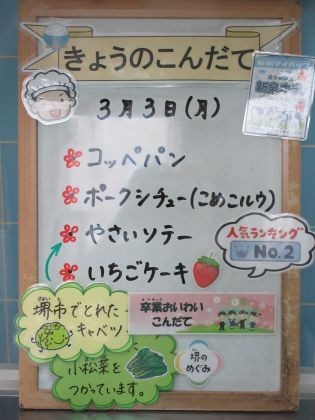 きょうのこんだて
3月3日(月)
コッペパン
ポークシチュー(こめこルウ)
やさいソテー
人気ランキング
No.2
いちごケーキ
卒業おいわい
こんだて
堺市でとれた
キャベツ
小松菜を
つかっています。
堺の
めぐみ